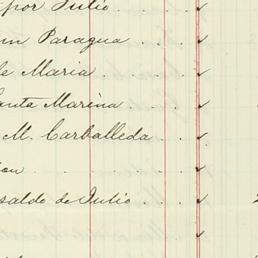 por Julio .
un Paragua . . .
de Maria . . .
Santa Marina . .
M. Carballeda . .
saldo de Julio . . .